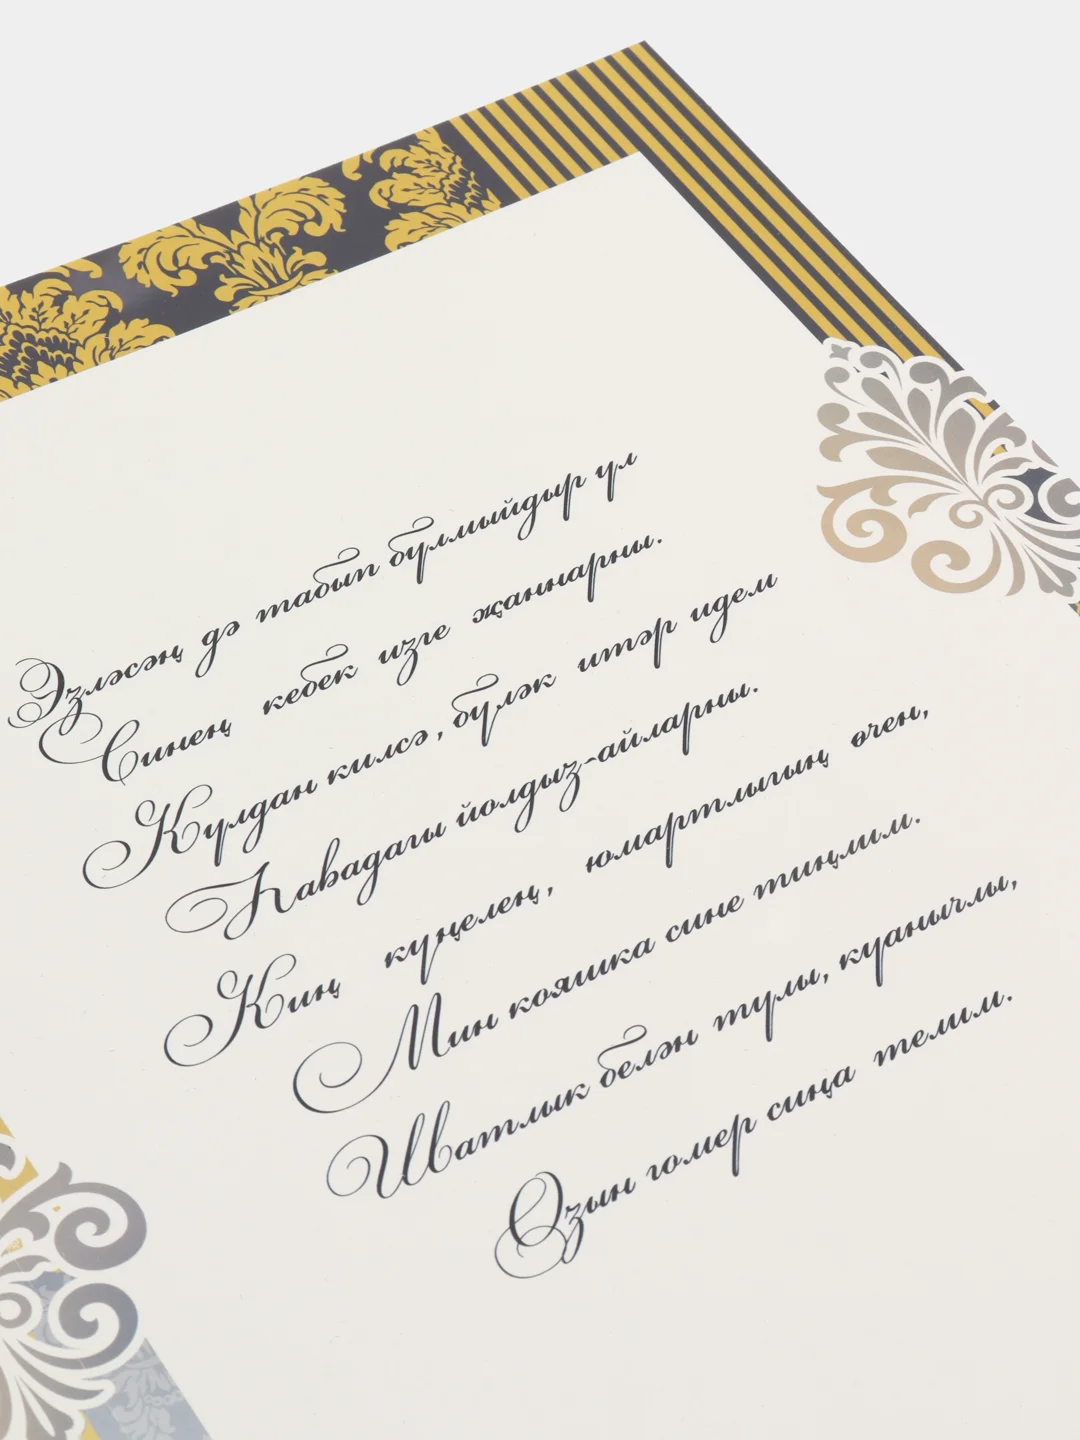 Эзләсәң дә табып булмыйдыр ул
Синең кебек изге җаннарны.
Кулдан килсә, бүләк итәр идем
Һавадагы йолдыз-айларны.
Киң күңелең, юмартлыгың өчен,
Мин кояшка сине тиңлим.
Шатлык белән тулы, куанычлы,
Озын гомер сиңа телим.